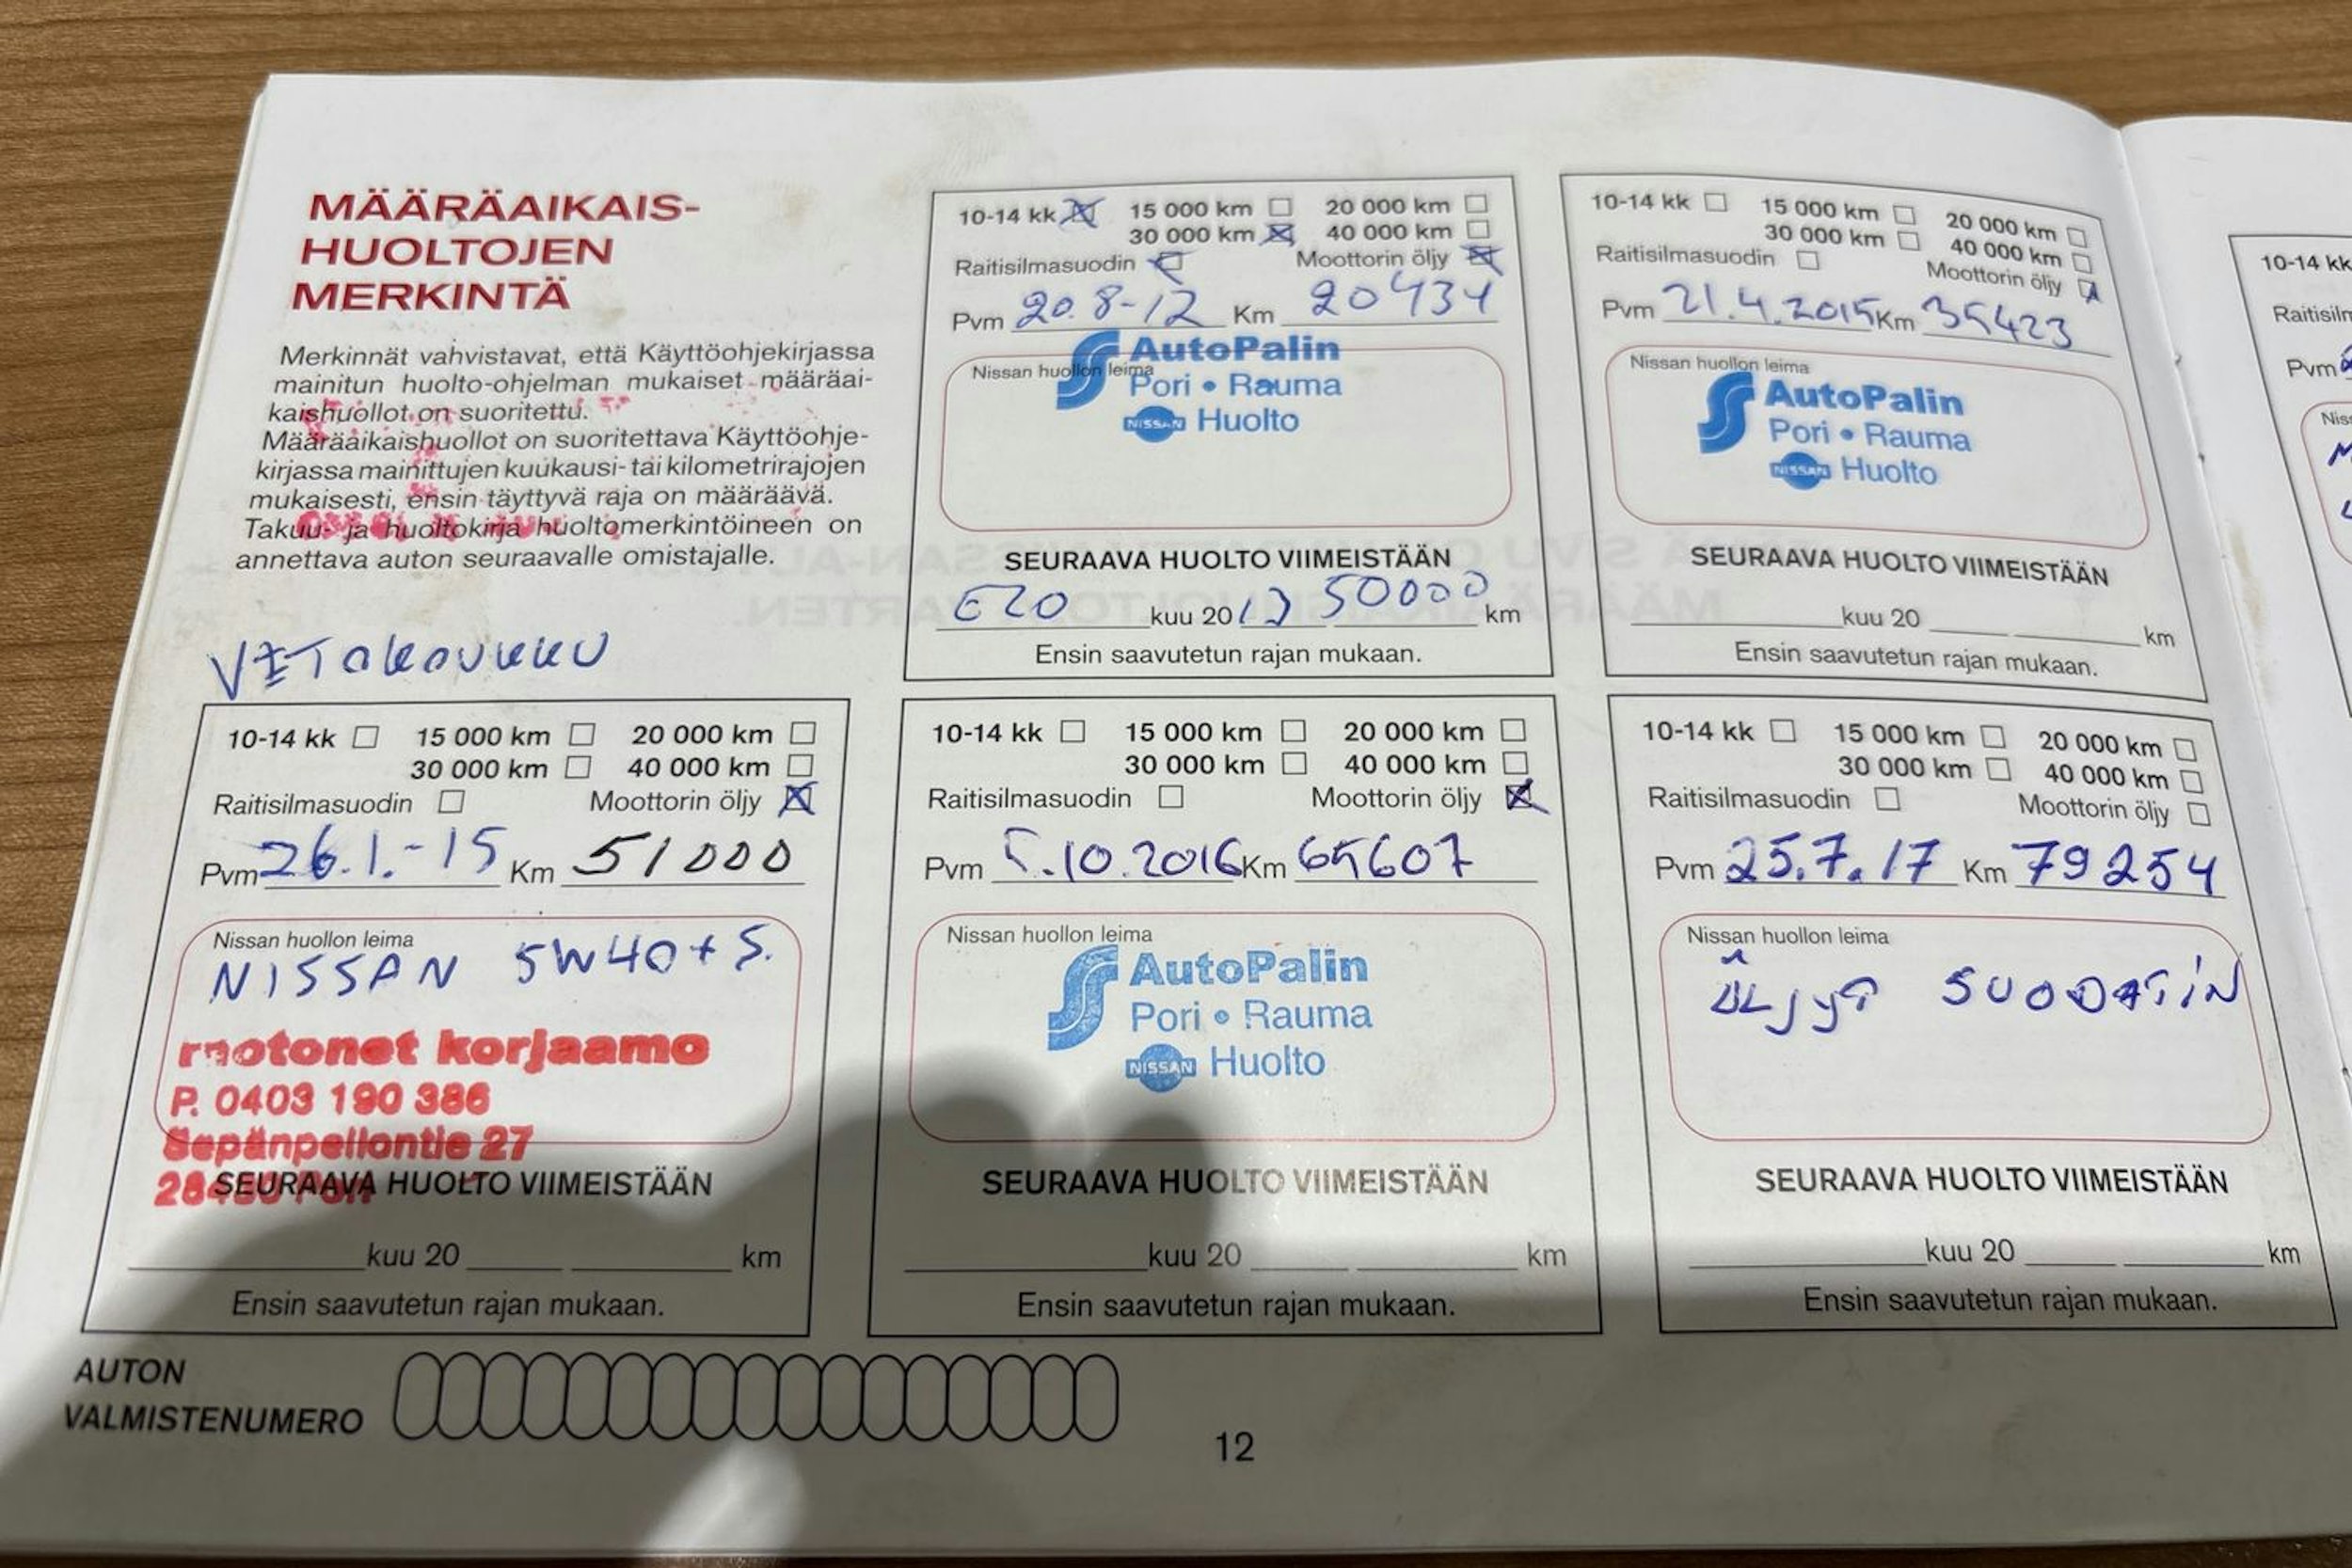 MÄÄRÄAIKAIS-
HUOLTOJEN
MERKINTÄ
Merkinnät vahvistavat, että Käyttöohjekirjassa
mainitun huolto-ohjelman mukaiset määräai-
kaishuollot on suoritettu.
Määräaikaishuollot on suoritettava Käyttöohje-
kirjassa mainittujen kuukausi- tai kilometrirajojen
mukaisesti, ensin täyttyvä raja on määräävä.
Takuu- ja huoltokirja huoltomerkintöineen on
annettava auton seuraavalle omistajalle.
10-14 kk 15 000 km 20 000 km
30 000 km 40 000 km
Raitisilmasuodin Moottorin öljy
Pvm 20.8-12 Km 20434
Nissan huollon leima
AutoPalin
Pori • Rauma
NISSAN Huolto
SEURAAVA HUOLTO VIIMEISTÄÄN
kuu 2013 50000 km
Ensin saavutetun rajan mukaan.
10-14 kk 15 000 km 20 000 km
30 000 km 40 000 km
Raitisilmasuodin Moottorin öljy
Pvm 21.4.2015 Km 35423
Nissan huollon leima
AutoPalin
Pori • Rauma
NISSAN Huolto
SEURAAVA HUOLTO VIIMEISTÄÄN
kuu 20 km
Ensin saavutetun rajan mukaan.
10-14 kk
Pvm
10-14 kk 15 000 km 20 000 km
30 000 km 40 000 km
Raitisilmasuodin Moottorin öljy
Pvm 26.1.-15 Km 51000
Nissan huollon leima
NISSAN 5W40+S.
motonet korjaamo
P. 0403 190 386
Sepänpellontie 27
SEURAAVA HUOLTO VIIMEISTÄÄN
kuu 20 km
Ensin saavutetun rajan mukaan.
10-14 kk 15 000 km 20 000 km
30 000 km 40 000 km
Raitisilmasuodin Moottorin öljy
Pvm 5.10.2016 Km 65607
Nissan huollon leima
AutoPalin
Pori • Rauma
NISSAN Huolto
SEURAAVA HUOLTO VIIMEISTÄÄN
kuu 20 km
Ensin saavutetun rajan mukaan.
10-14 kk 15 000 km 20 000 km
30 000 km 40 000 km
Raitisilmasuodin Moottorin öljy
Pvm 25.7.17 Km 79254
Nissan huollon leima
ÖLJYT SUODATIN
SEURAAVA HUOLTO VIIMEISTÄÄN
kuu 20 km
Ensin saavutetun rajan mukaan.
AUTON
VALMISTENUMERO
12